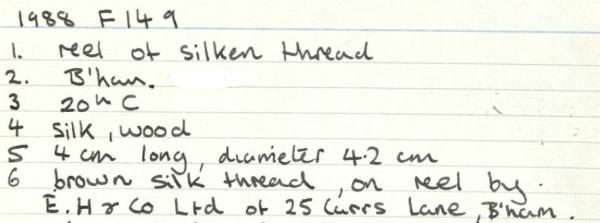 1988 F149
1. reel of silken thread
2. B'ham.
3 20th C
4 silk, wood
5 4 cm long, diameter 4.2 cm
6 brown silk thread, on reel by.
E. H & Co Ltd of 25 Carrs Lane, B'ham.